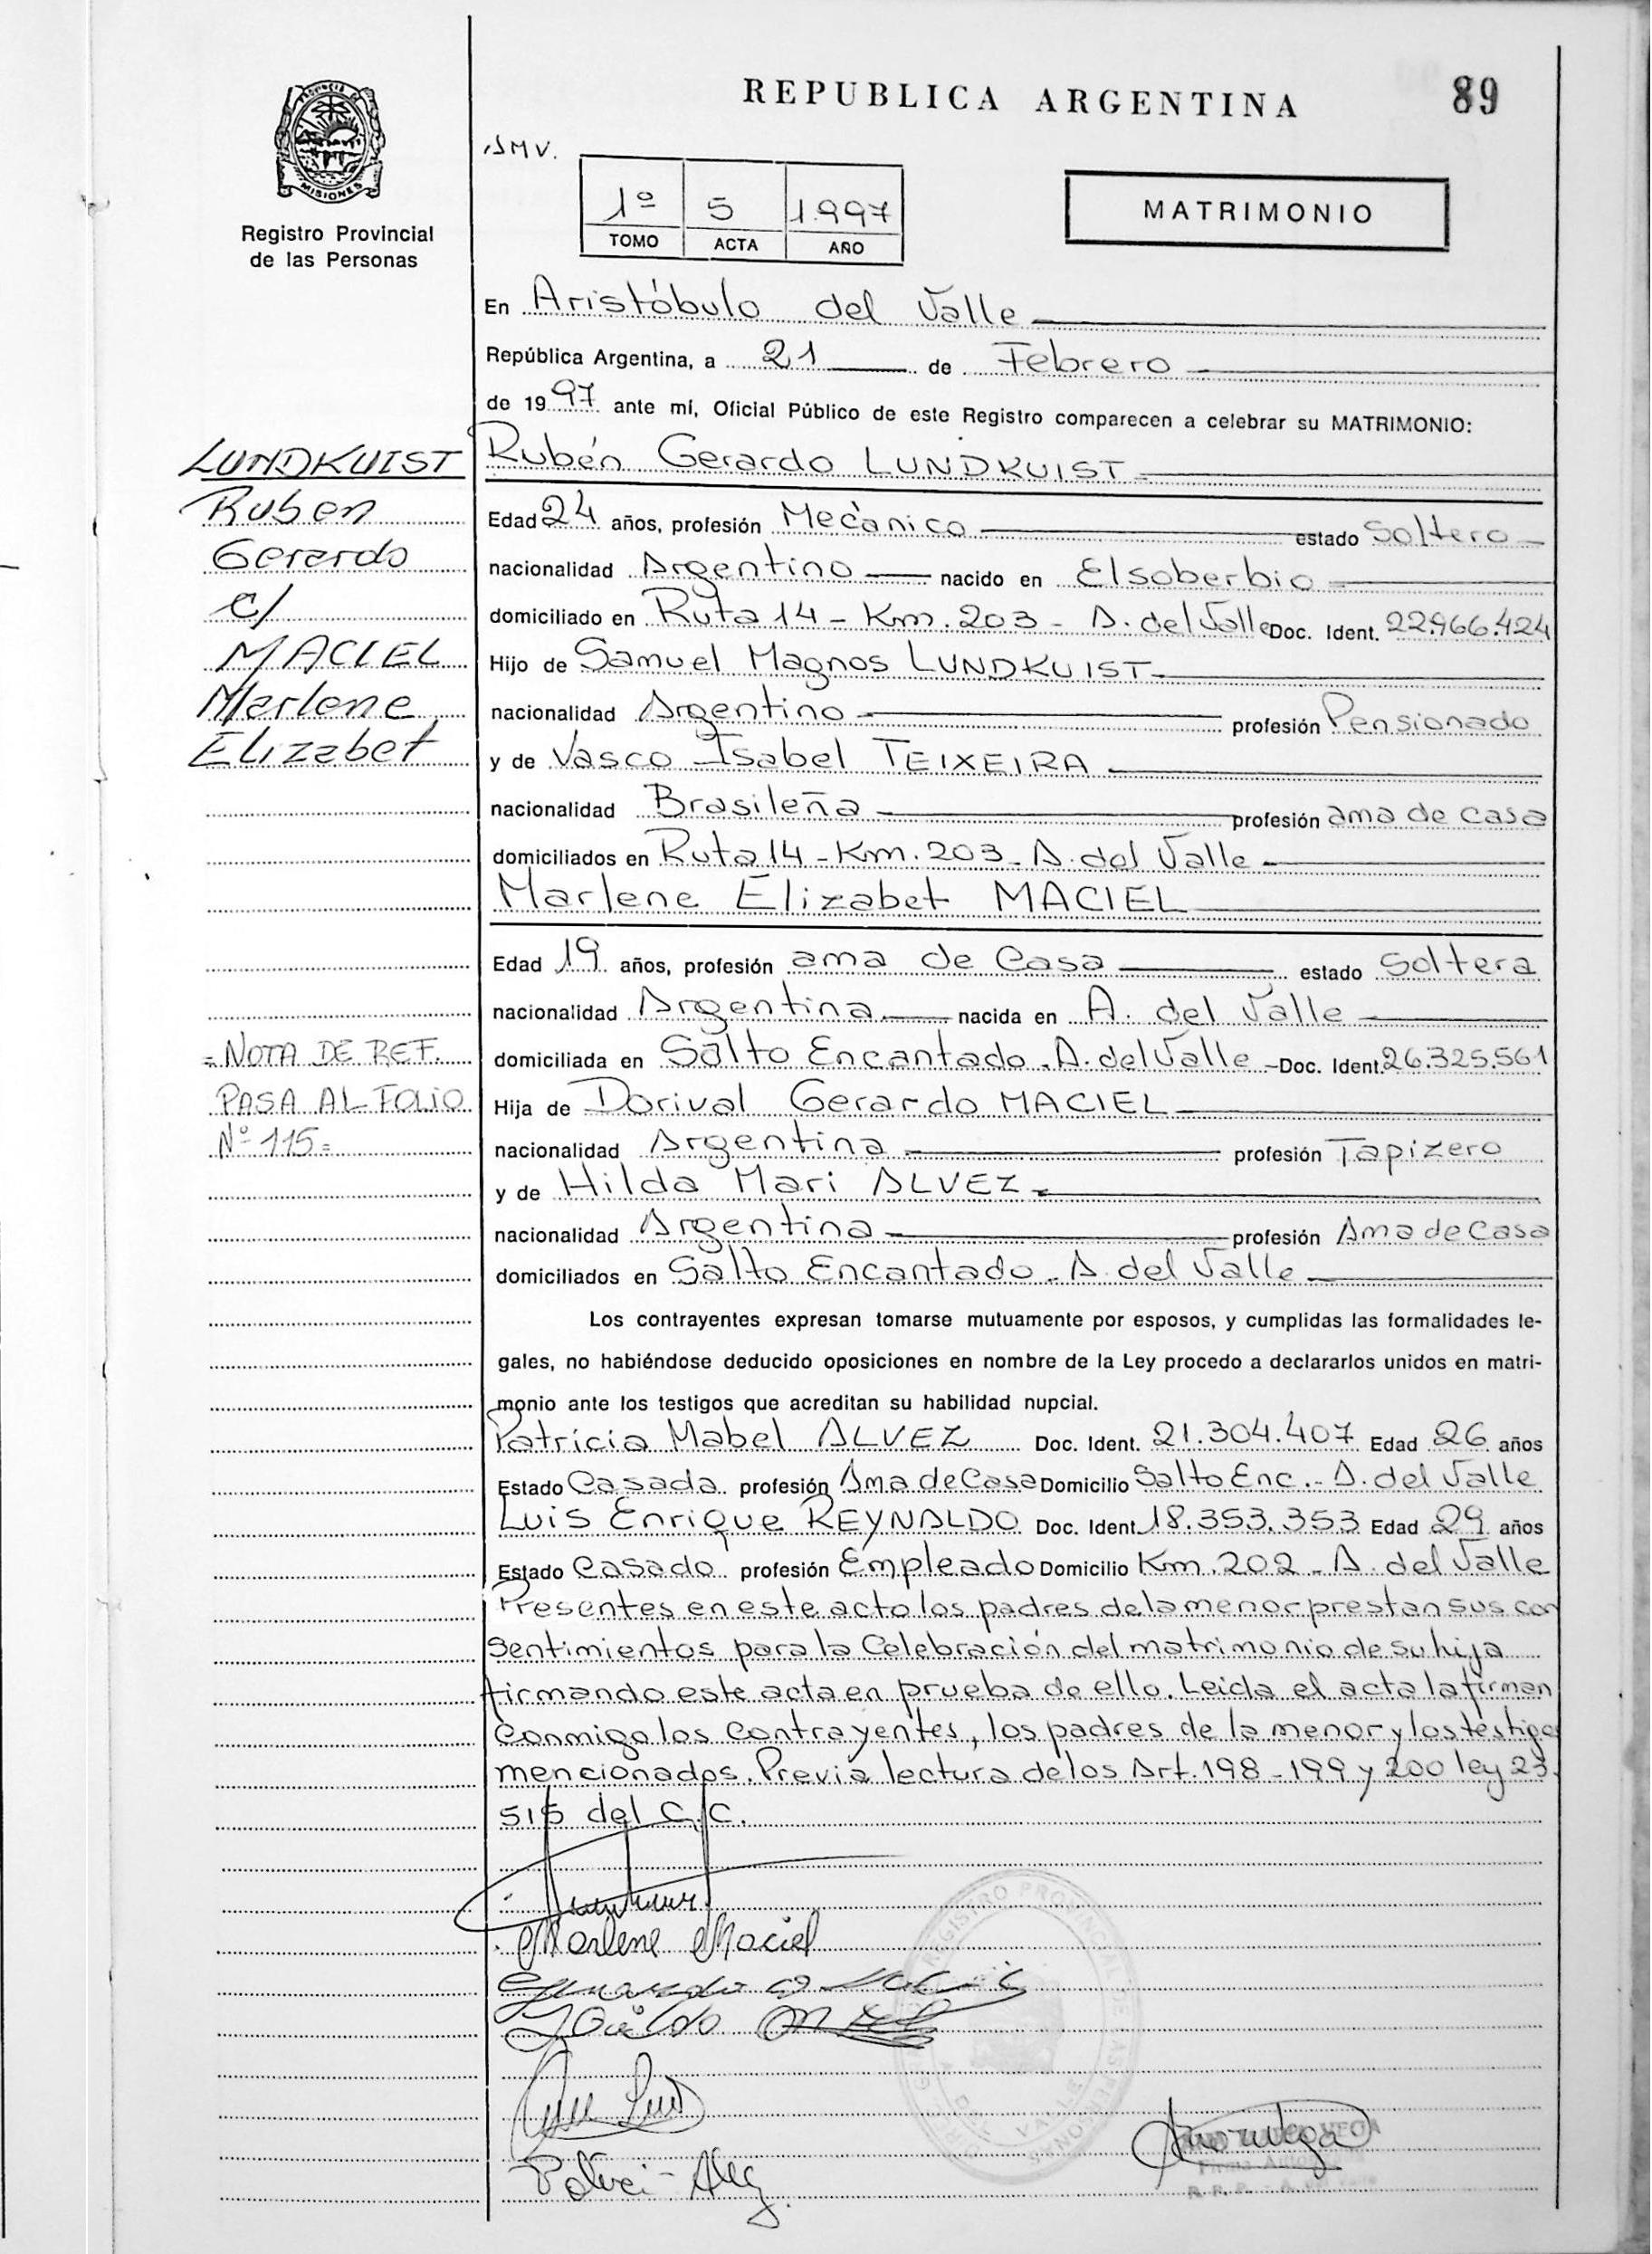 REPUBLICA ARGENTINA
89
PROVINCIA DE
MISIONES
Registro Provincial
de las Personas
SMV.
1º 5 1.997
TOMO ACTA AÑO
MATRIMONIO
En Aristóbulo del Valle
República Argentina, a 21 de Febrero
de 1997 ante mí, Oficial Público de este Registro comparecen a celebrar su MATRIMONIO:
LUNDKUIST
Ruben
Gerardo
c/
MACIEL
Marlene
Elizabet
= NOTA DE REF.
PASA AL FOLIO
Nº 115=
Rubén Gerardo LUNDKUIST
Edad 24 años, profesión Mecánico estado Soltero
nacionalidad Argentino nacido en Elsoberbio
domiciliado en Ruta 14 - Km. 203 - A. del Valle Doc. Ident. 22.966.424
Hijo de Samuel Magnos LUNDKUIST
nacionalidad Argentino profesión Pensionado
y de Vasco Isabel TEIXEIRA
nacionalidad Brasileña profesión ama de casa
domiciliados en Ruta 14 - Km. 203 - A. del Valle
Marlene Elizabet MACIEL
Edad 19 años, profesión ama de Casa estado Soltera
nacionalidad Argentina nacida en A. del Valle
domiciliada en Salto Encantado - A. del Valle - Doc. Ident. 26.325.561
Hija de Dorival Gerardo MACIEL
nacionalidad Argentina profesión Tapizero
y de Hilda Mari ALVEZ
nacionalidad Argentina profesión Ama de Casa
domiciliados en Salto Encantado - A. del Valle
Los contrayentes expresan tomarse mutuamente por esposos, y cumplidas las formalidades le-
gales, no habiéndose deducido oposiciones en nombre de la Ley procedo a declararlos unidos en matri-
monio ante los testigos que acreditan su habilidad nupcial.
Patricia Mabel ALVEZ Doc. Ident. 21.304.407 Edad 26 años
Estado Casada profesión Ama de Casa Domicilio Salto Enc. - A. del Valle
Luis Enrique REYNALDO Doc. Ident. 18.353.353 Edad 29 años
Estado Casado profesión Empleado Domicilio Km. 202 - A. del Valle
Presentes en este acto los padres de la menor prestan sus con
sentimientos para la Celebración del matrimonio de su hija
firmando este acta en prueba de ello. Leida el acta la firman
Conmigo los Contrayentes, los padres de la menor y los testigos
mencionados. Previa lectura de los Art. 198 - 199 y 200 ley 23.
515 del C.C.
Marlene Maciel
REGISTRO PROVINCIAL DE LAS PERSONAS
DEL VALLE
VEGA